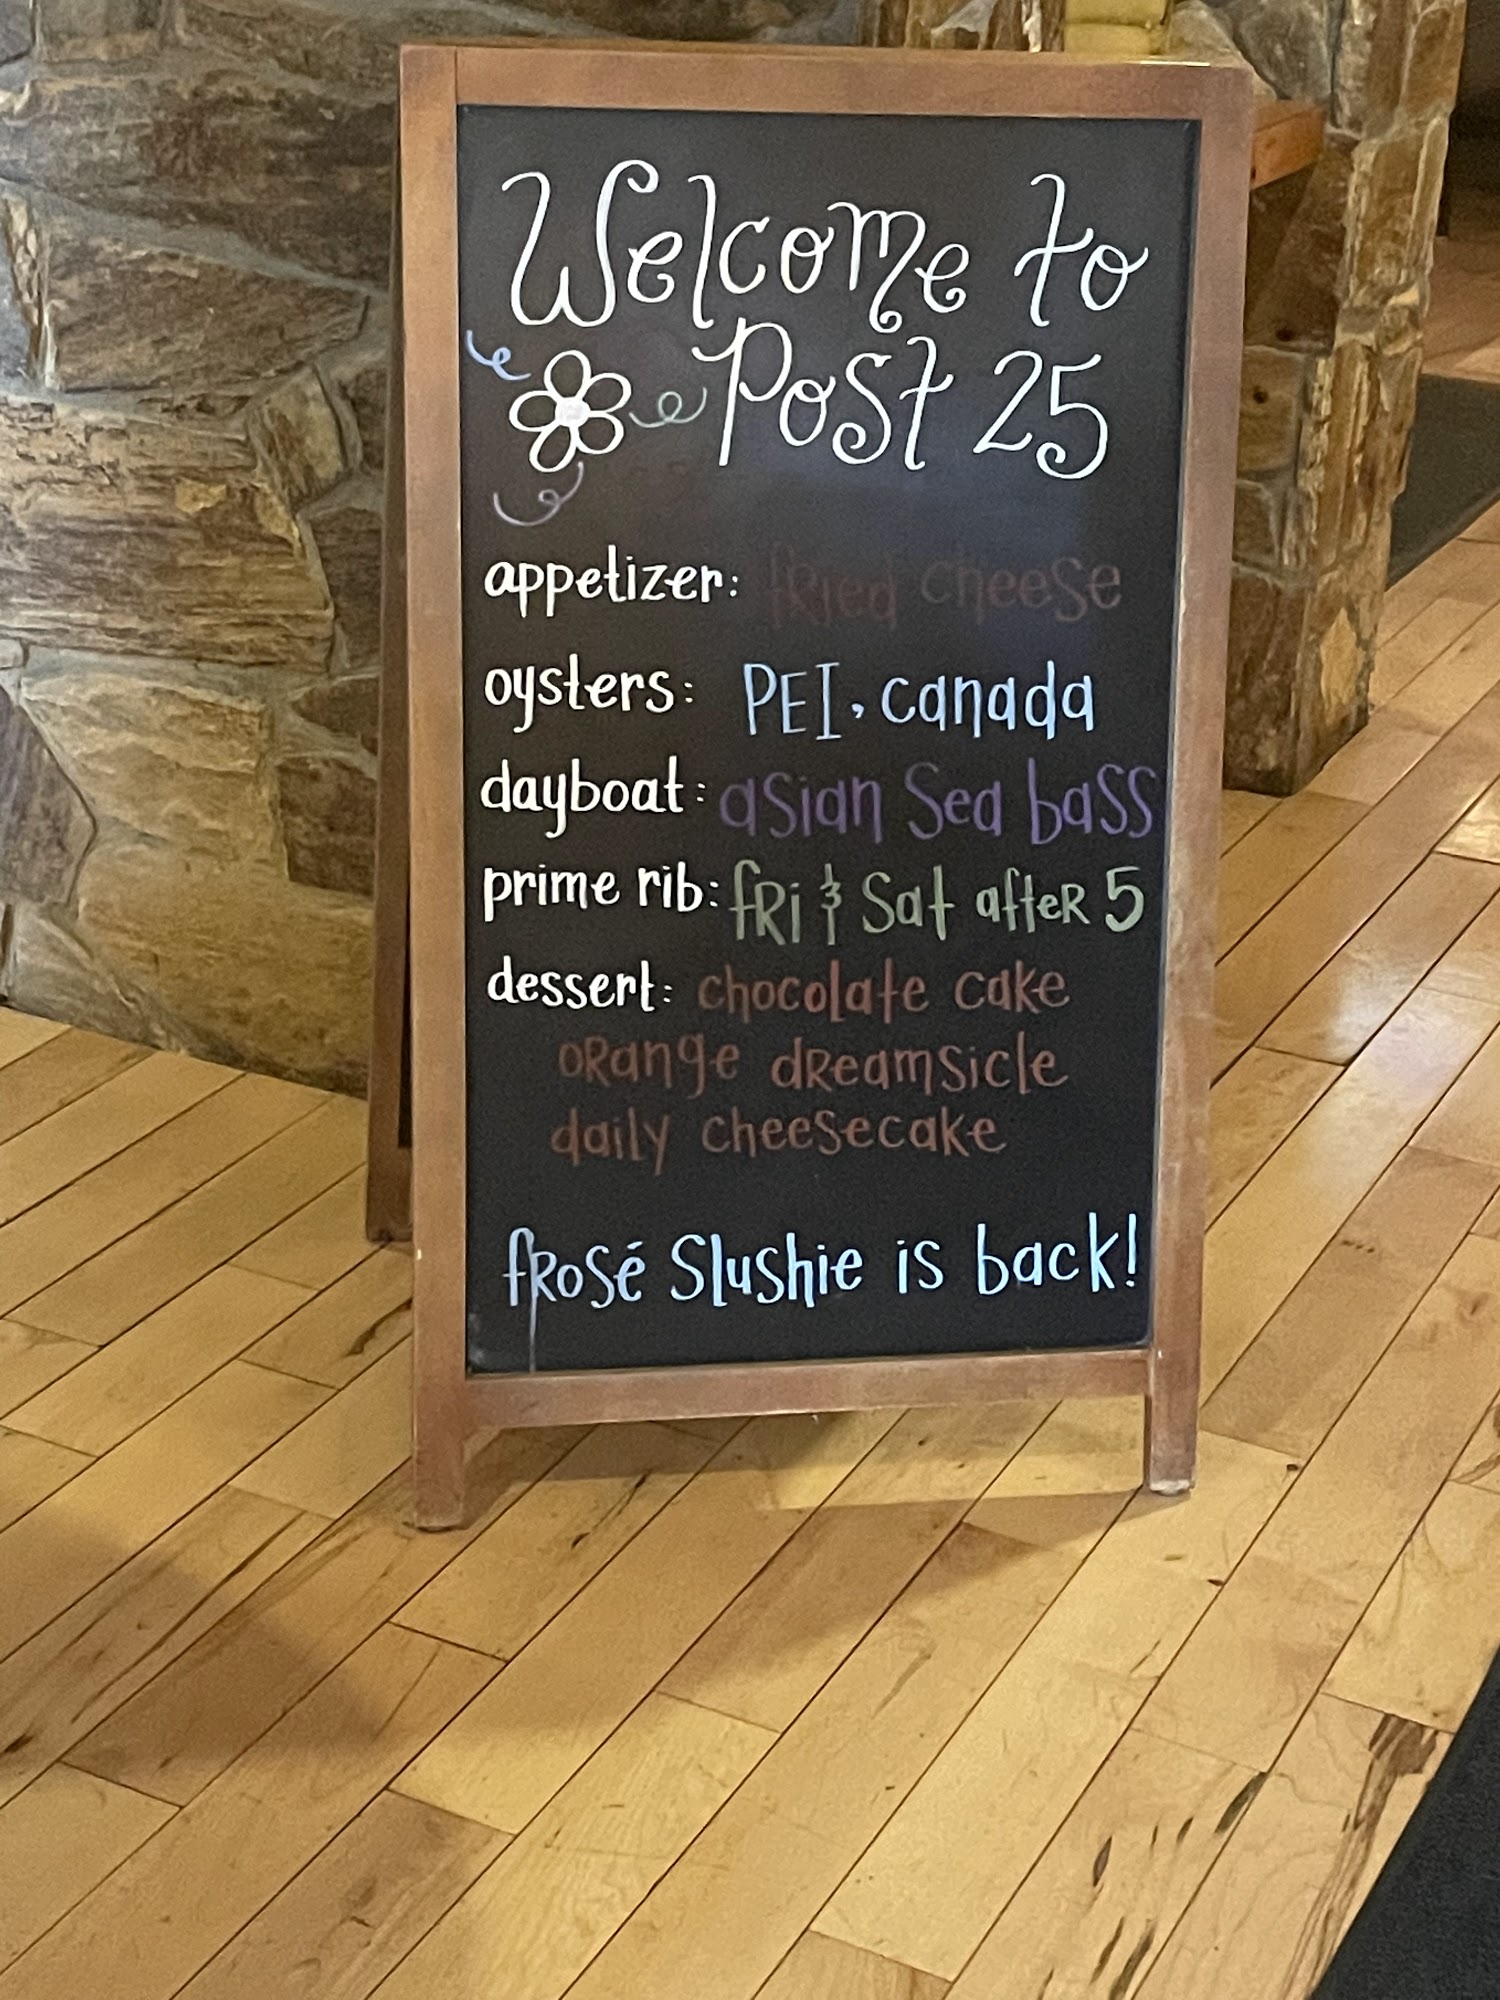 Welcome to
Post 25
appetizer: fried cheese
oysters: PEI, canada
dayboat: asian Sea bass
prime rib: fRi & Sat afteR 5
dessert: chocolate cake
oRange dReamsicle
daily cheesecake
fRosé Slushie is back!